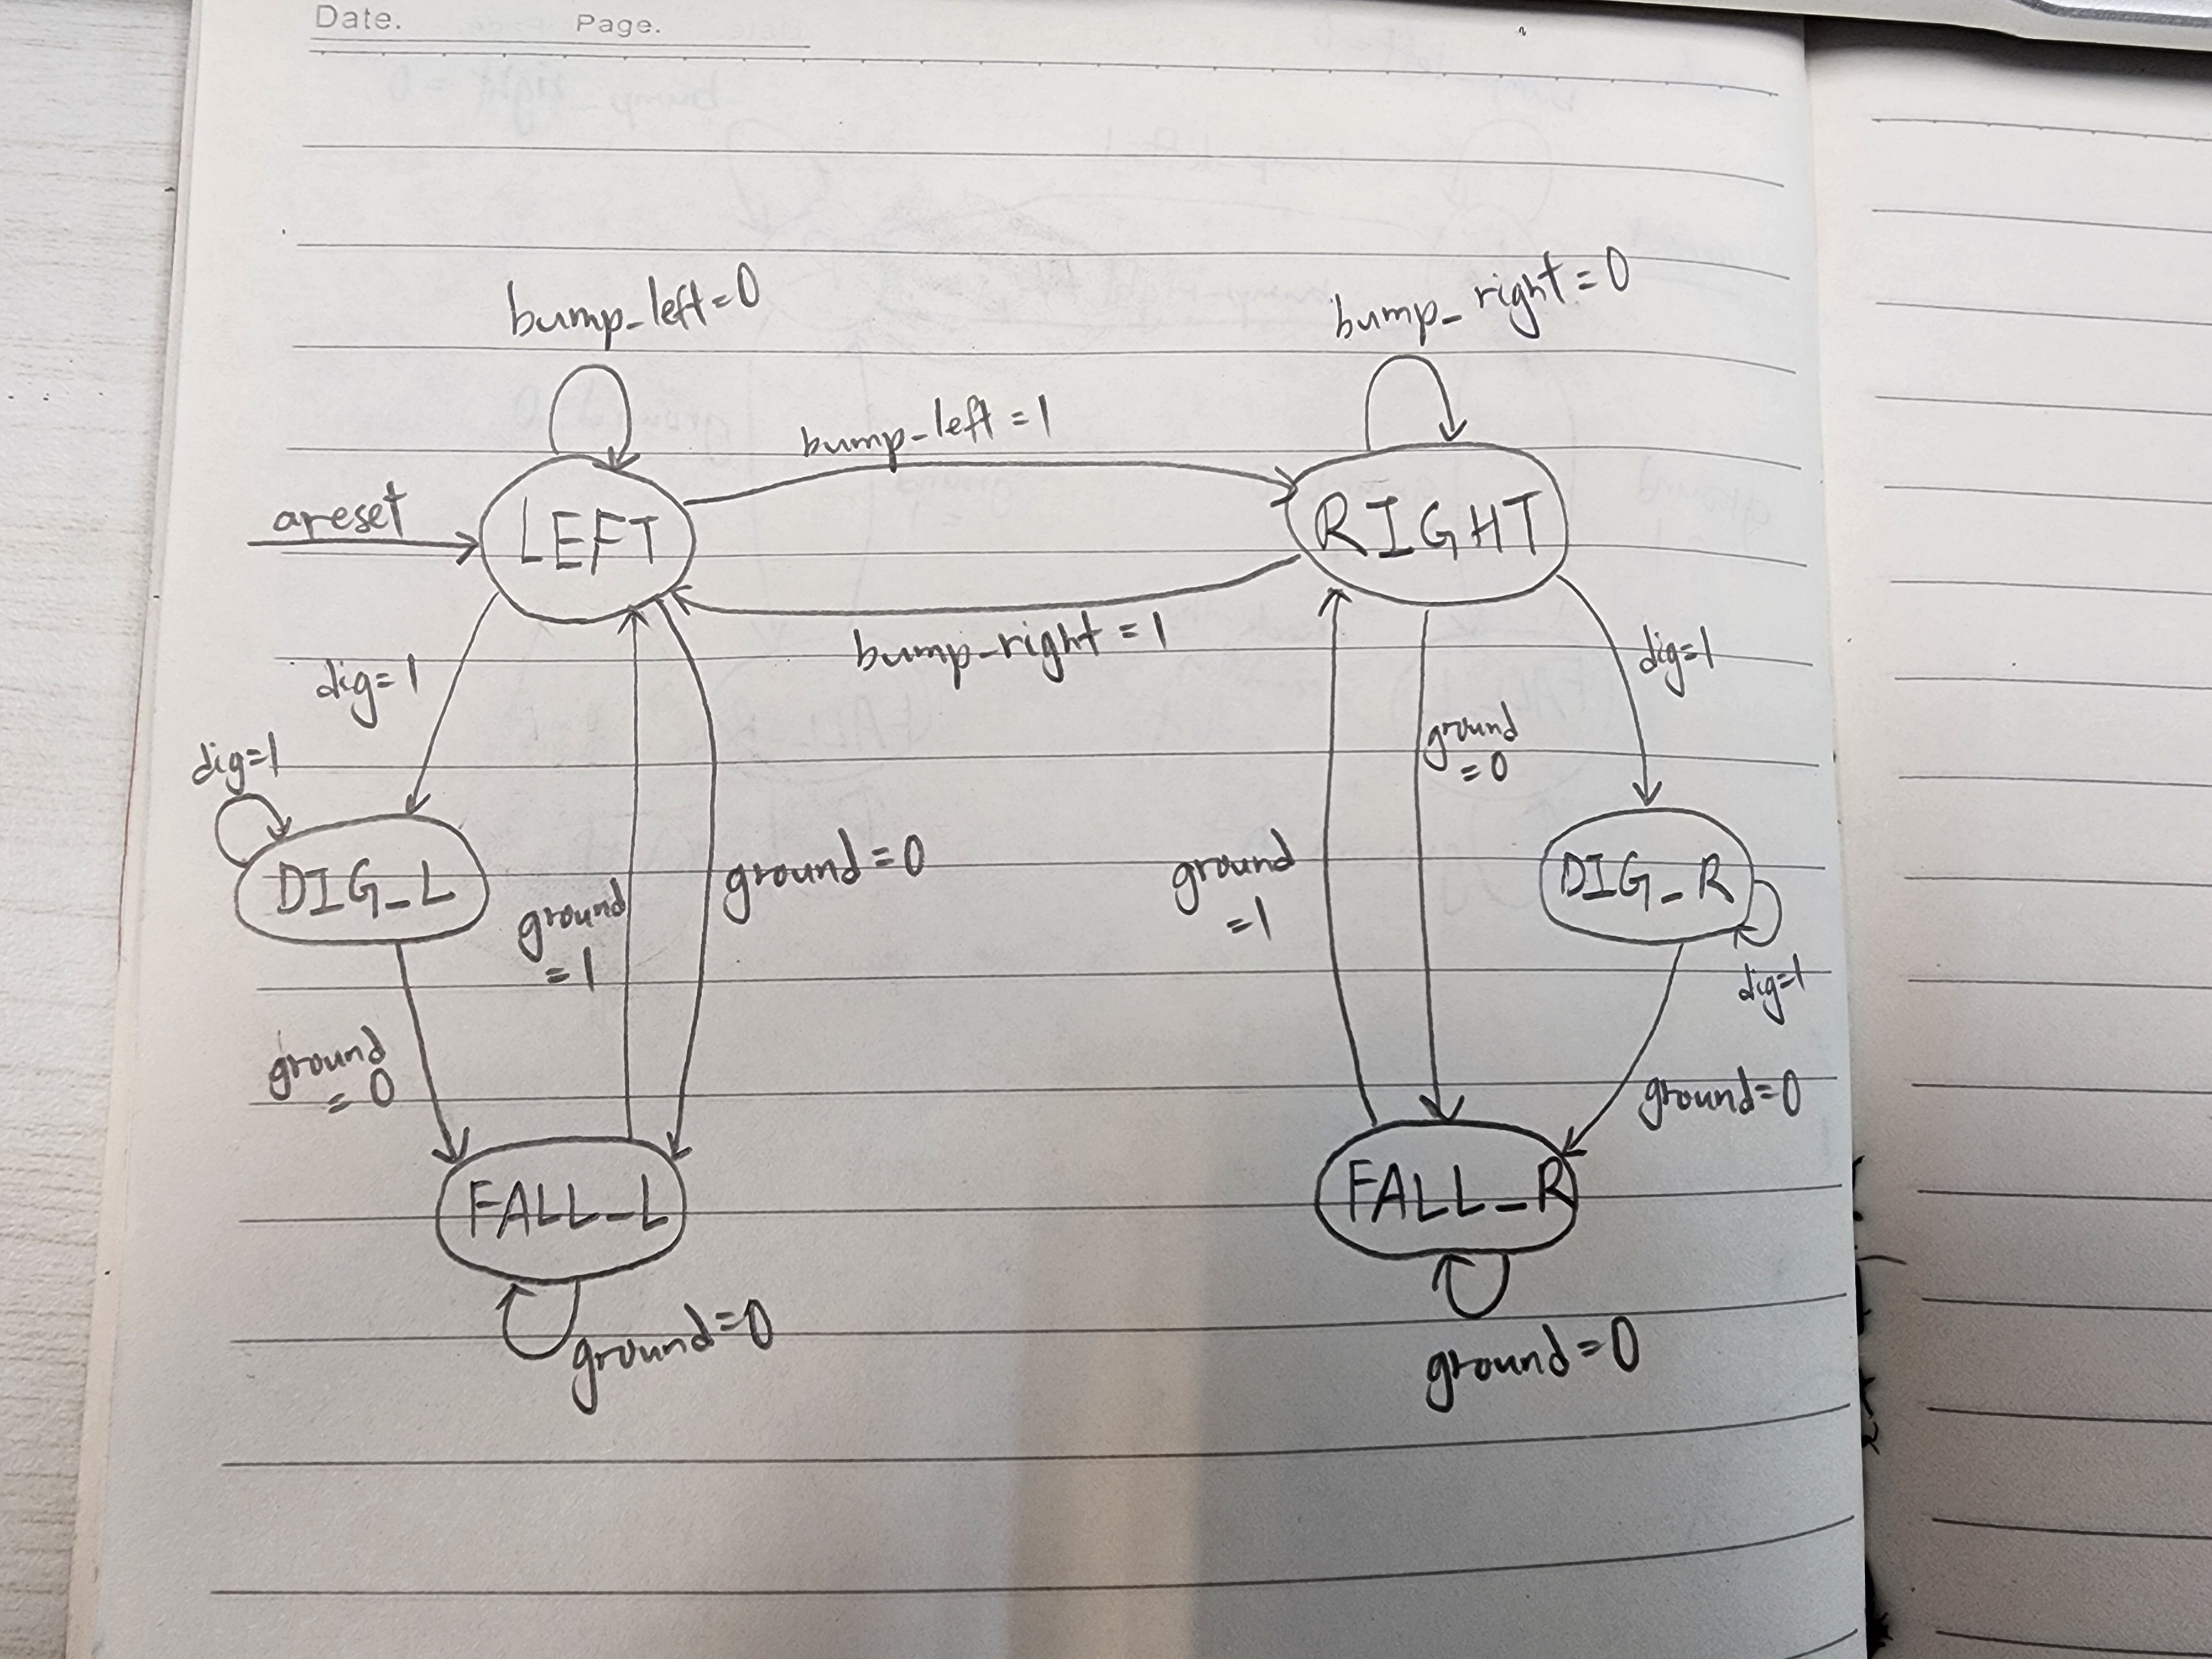 Date. Page.
bump_left=0
bump_right=0
bump_left=1
areset
LEFT
RIGHT
bump_right=1
dig=1
dig=1
ground
=0
dig=1
DIG_L
ground
=1
ground=0
ground
=1
DIG_R
dig=1
ground
=0
ground=0
FALL_L
FALL_R
ground=0
ground=0